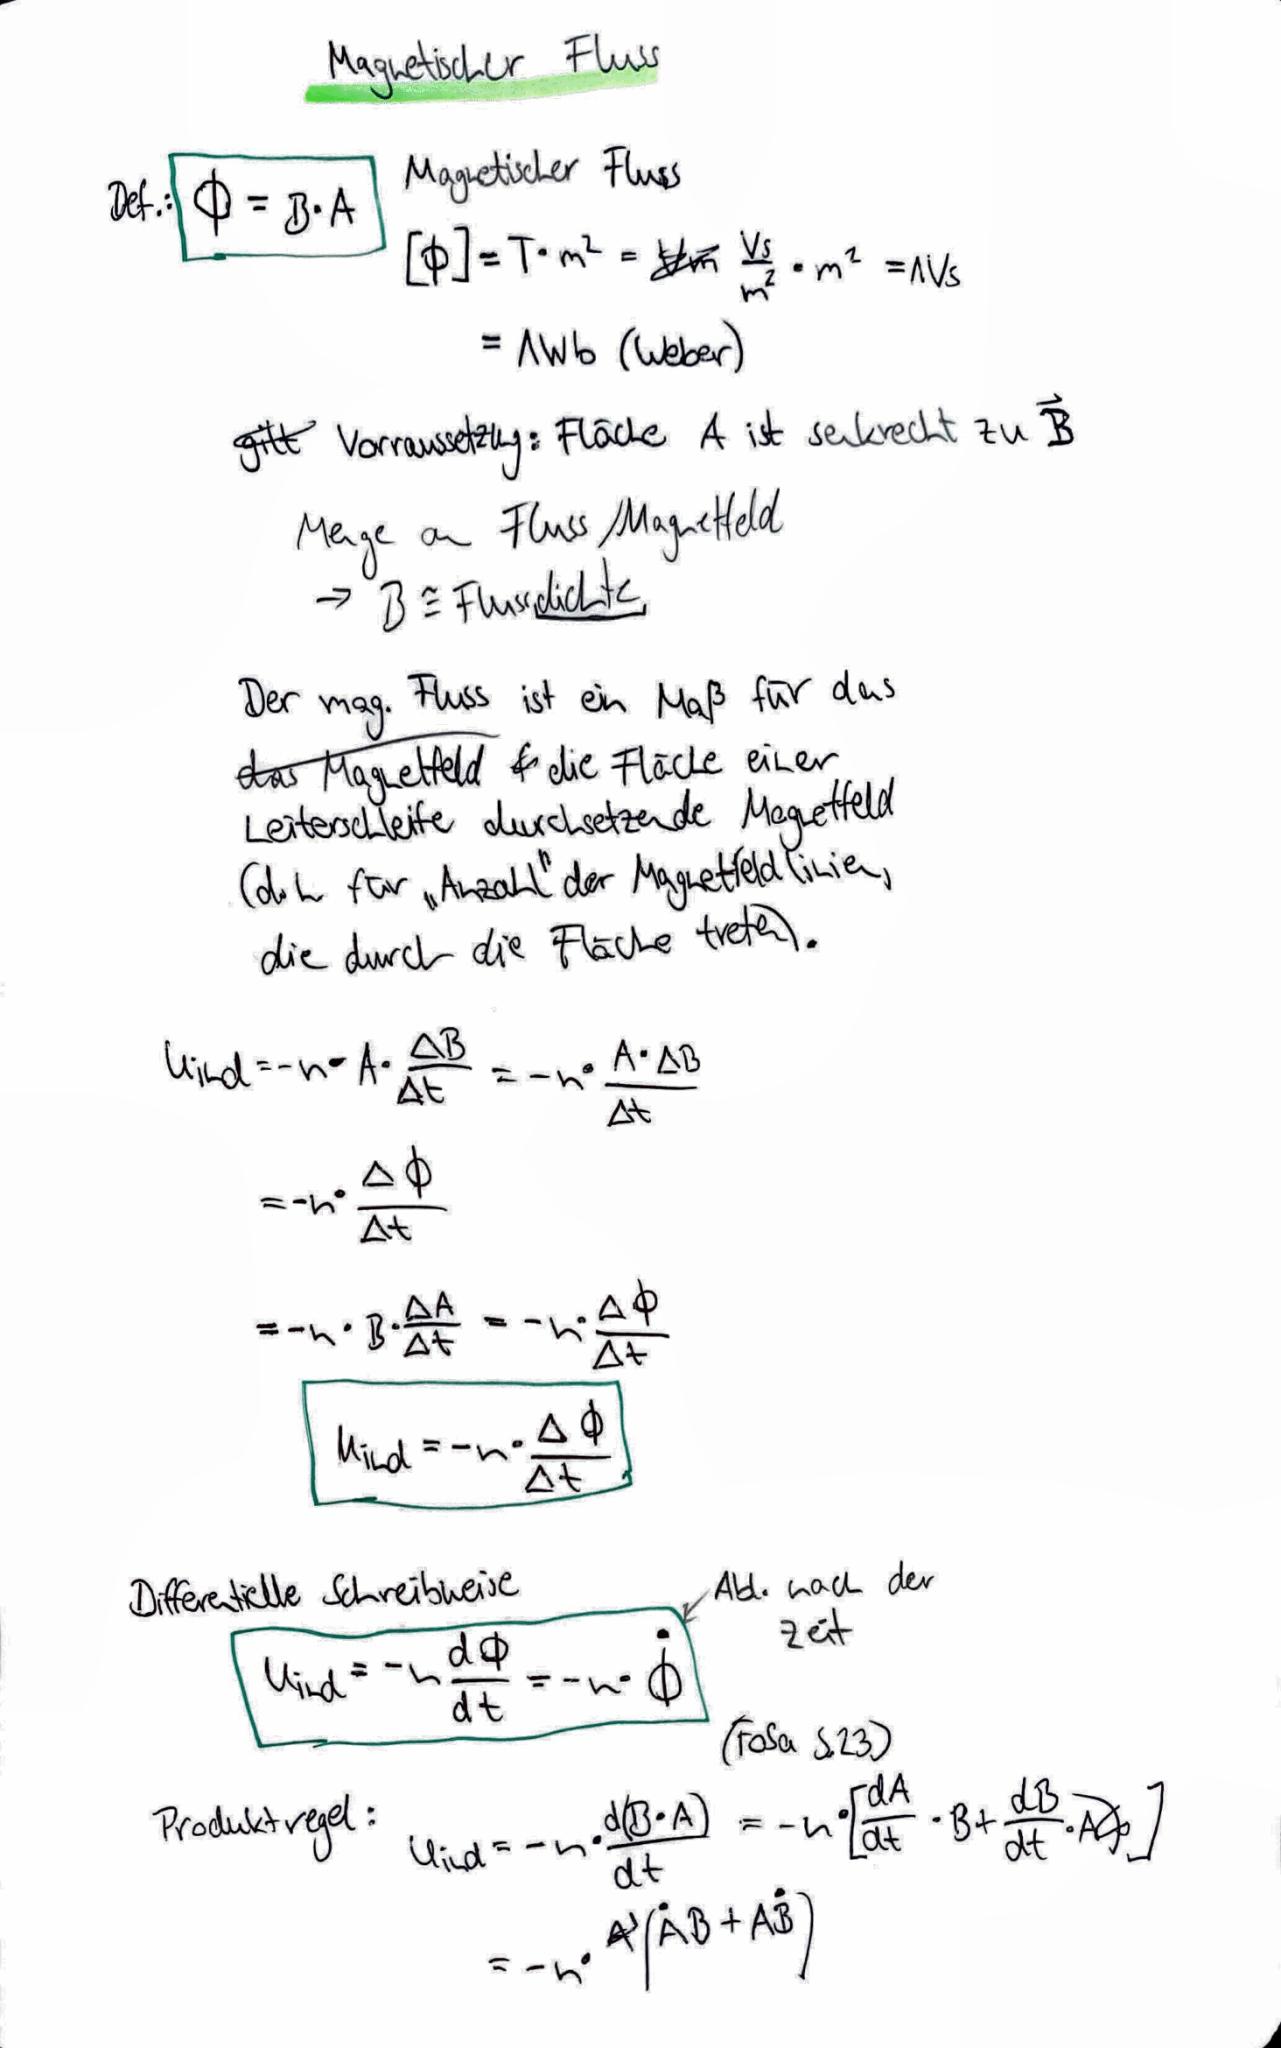 Magnetischer Fluss
Def.: Φ = B·A Magnetischer Fluss
[Φ] = T·m² = Vs/m² · m² = 1Vs
= 1Wb (Weber)
gilt Vorraussetzung: Fläche A ist senkrecht zu B⃗
Menge an Fluss/Magnetfeld
→ B ≅ Flussdichte
Der mag. Fluss ist ein Maß für das
das Magnetfeld die Fläche einer
Leiterschleife durchsetzende Magnetfeld
(d.h für „Anzahl" der Magnetfeldlinien,
die durch die Fläche treten).
Uind = -n · A · ΔB/Δt = -n · A·ΔB/Δt
= -n · ΔΦ/Δt
= -n · B · ΔA/Δt = -n · ΔΦ/Δt
Uind = -n · ΔΦ/Δt
Differentielle Schreibweise
Abl. nach der
Zeit
Uind = -n dΦ/dt = -n · Φ̇
(FoSa S.23)
Produktregel: Uind = -n · d(B·A)/dt = -n · [dA/dt · B + dB/dt · A]
= -n · (ȦB + AḂ)